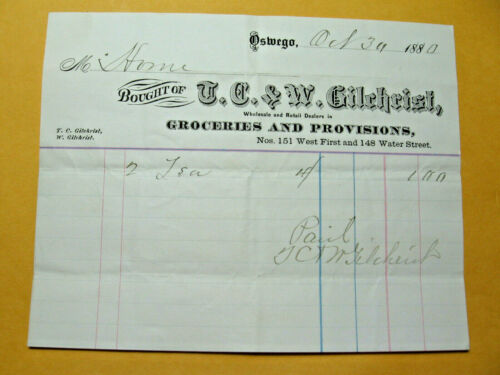 Oswego, Oct 30 1880
M Home
BOUGHT OF T. C. & W. Gilchrist,
Wholesale and Retail Dealers in
T. C. Gilchrist,
W. Gilchrist.
GROCERIES AND PROVISIONS,
Nos. 151 West First and 148 Water Street.
2 Tea 1 00
Paid
T C & W Gilchrist